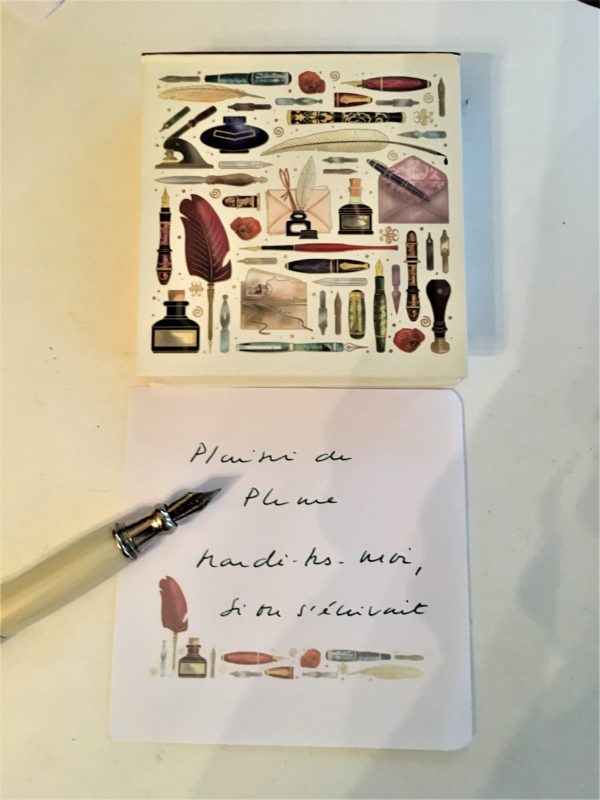 Plaisir de
Plume
Mardi-tos-moi,
Si on s'écrivait